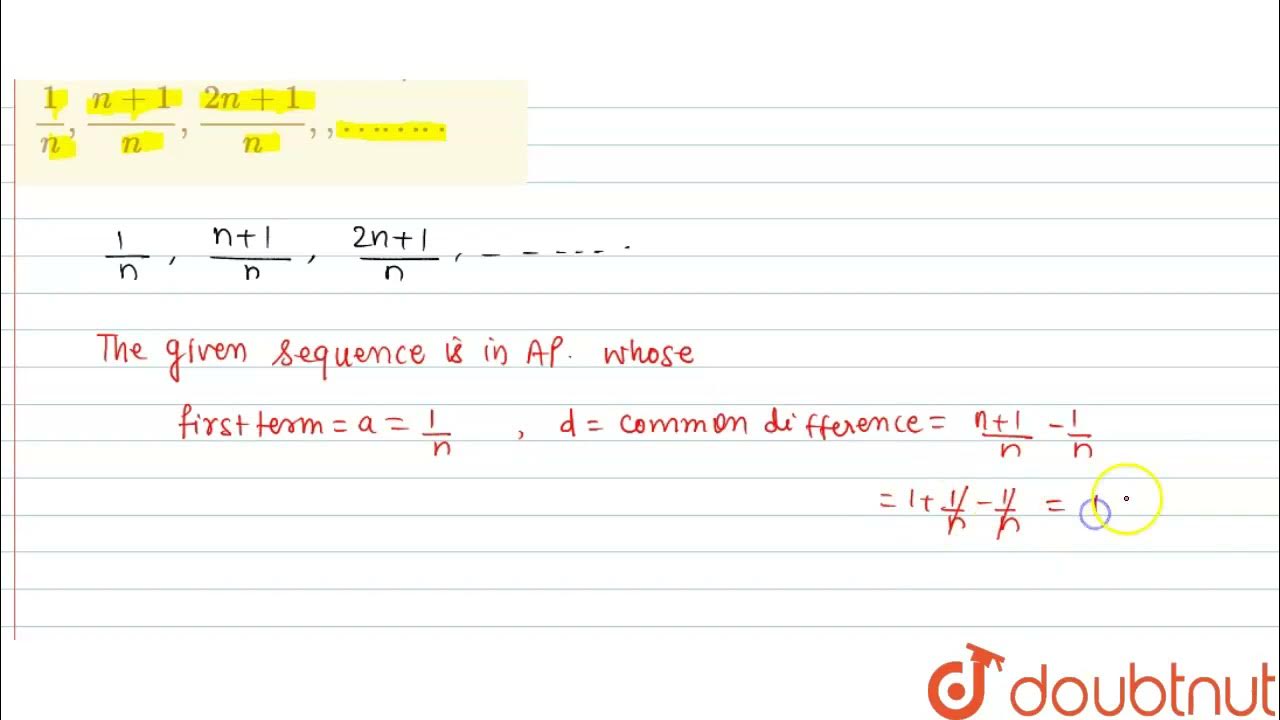 1/n, n+1/n, 2n+1/n, ,........
1/n, n+1/n, 2n+1/n, - - - - - -
The given sequence is in AP. whose
first term = a = 1/n , d = common difference = n+1/n - 1/n
= 1 + 1/n - 1/n = 1
doubtnut